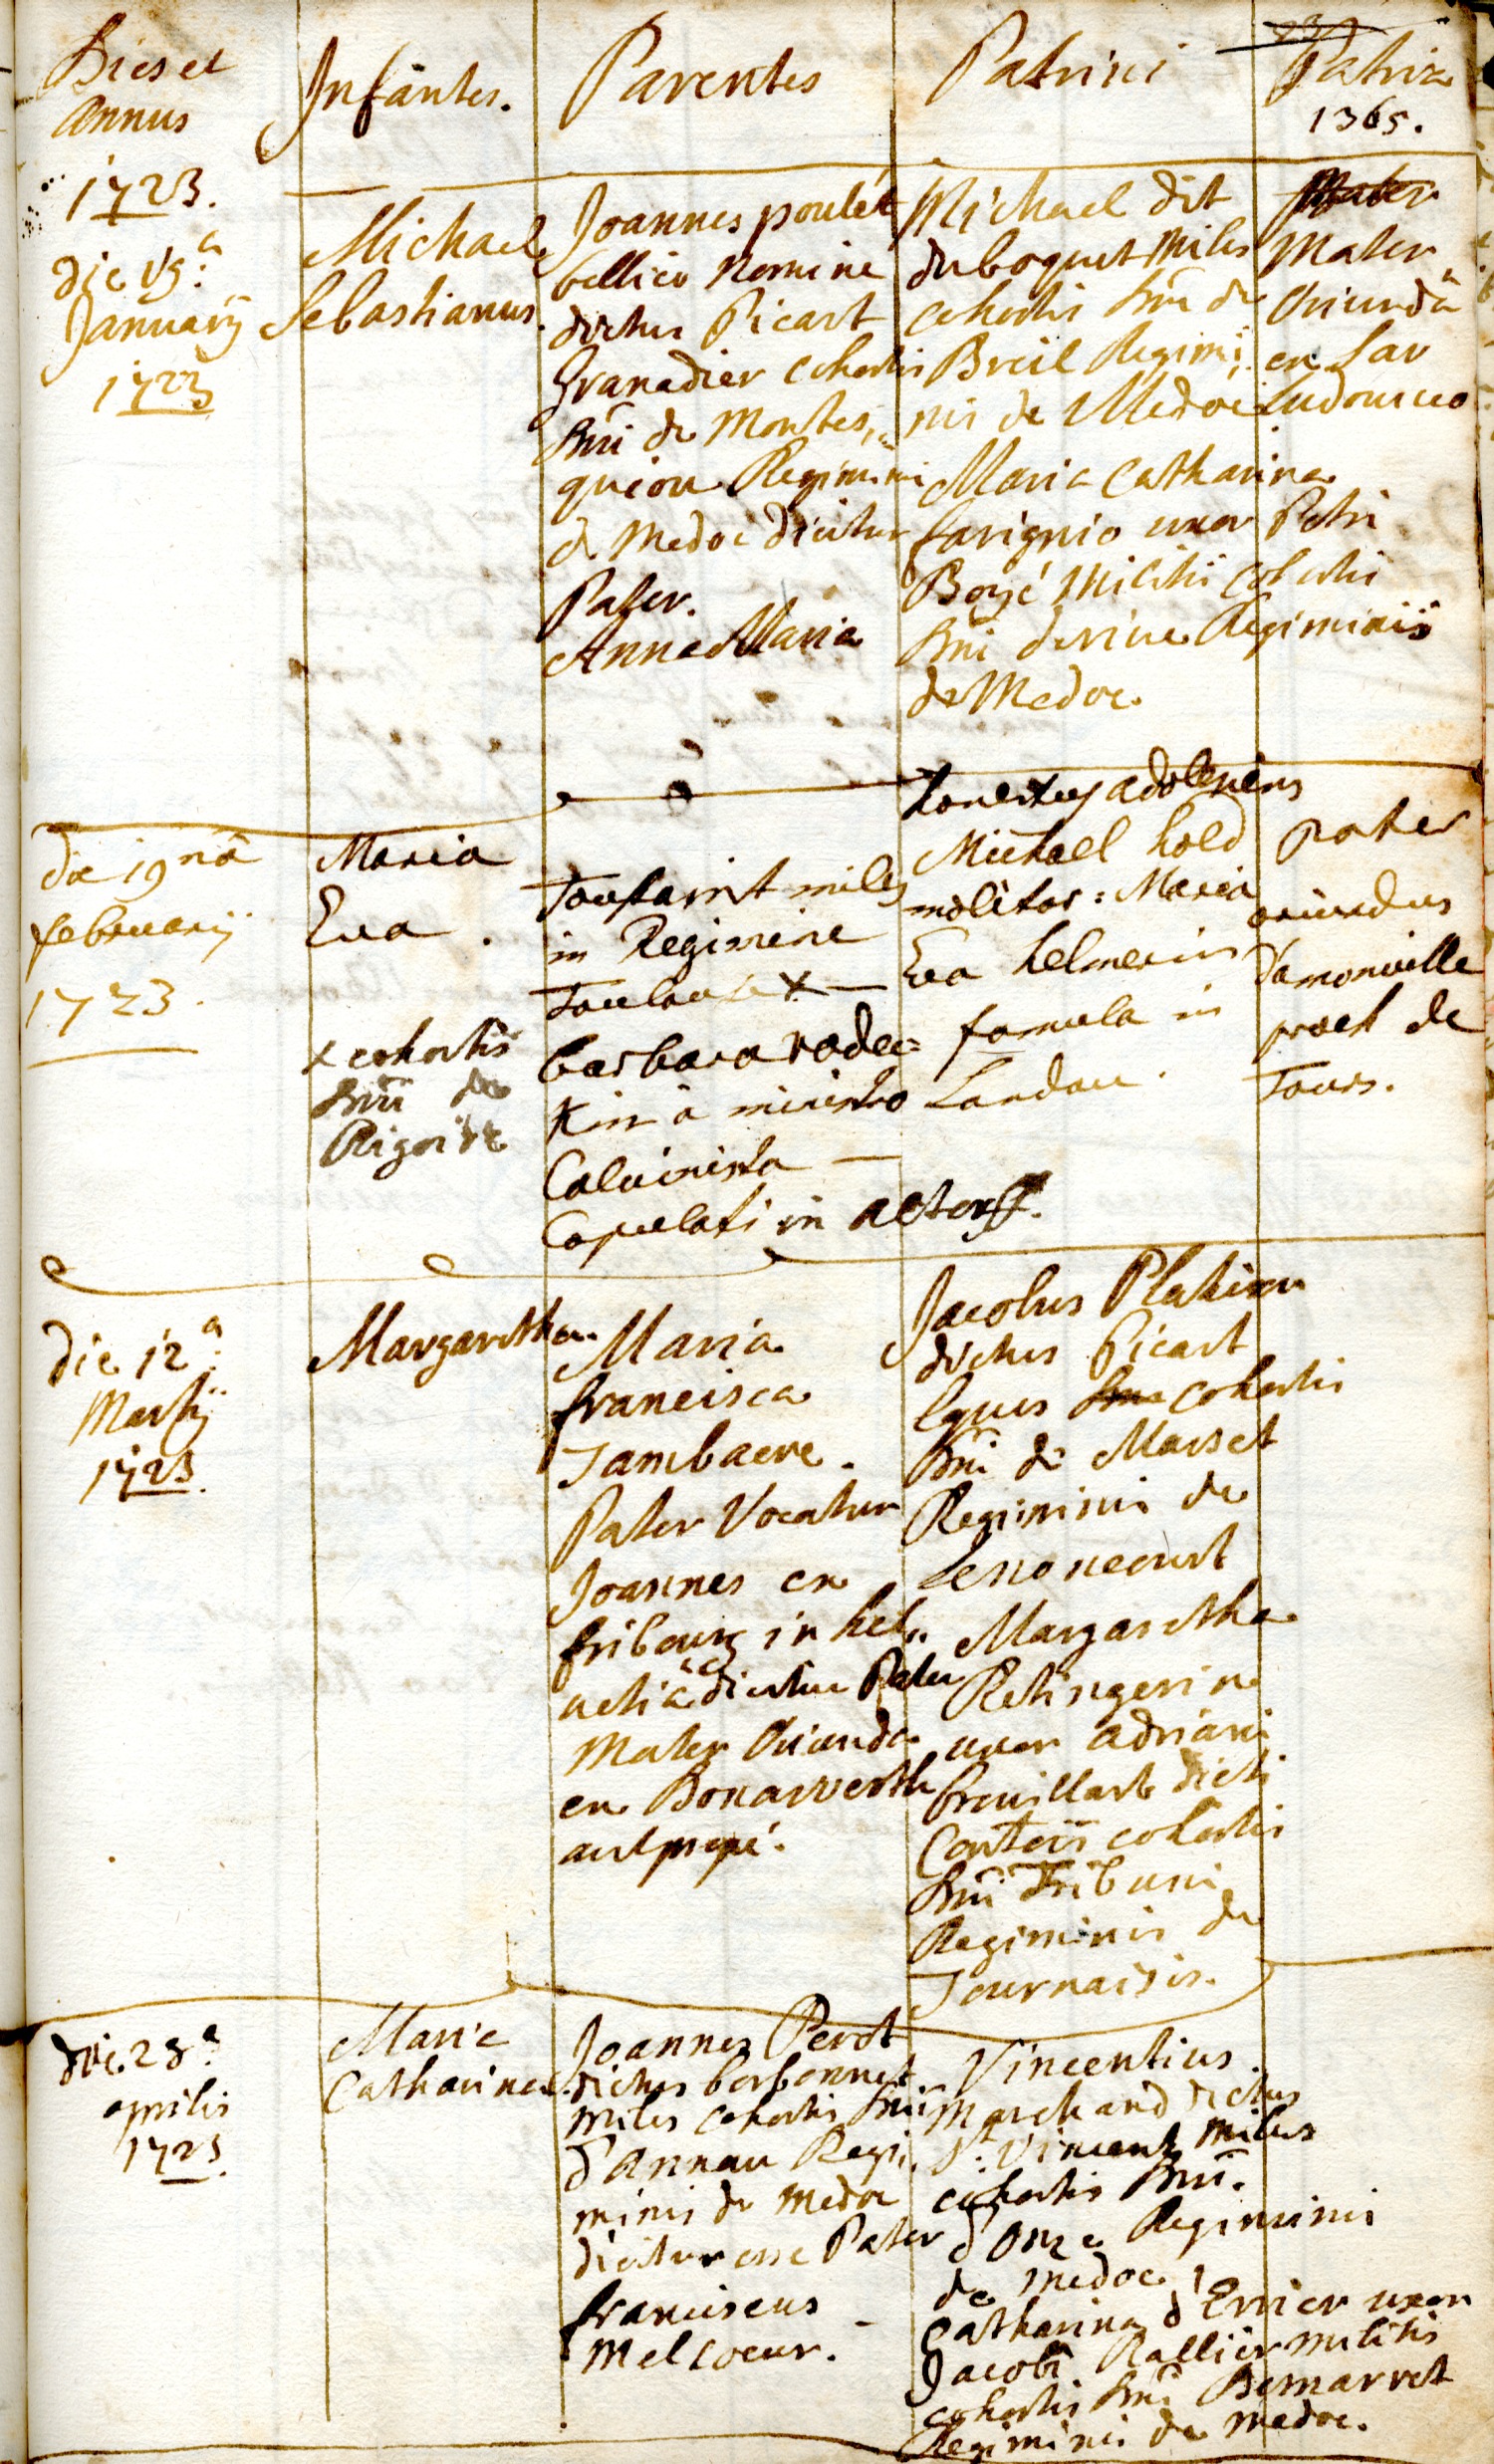 Dies et
annus
1723.
Infantes.
Parentes
Patrini
Patria
1365.
die 15.a
Januarÿ
1723
Michael
Sebastianus.
Joannes poulét
bellico nomine
dictus Picart
Granadier cohortis
Dnī de Montes„
quiou Regiminis
de Medoc dicitur
Pater.
Anna Maria
Michael dit
du boquet Miles
cohortis Dnī de
Breil Regimi„
nis de Medoc
Maria Catharina
Larignio uxor Petri
Boyé Militis cohortis
Dnī derive Regiminis
de Medoc.
Mater
Mater
Oriunda
ex Sar
Ludovico
die 19nâ
februarÿ
1723.
Maria
Eva.
x cohortis
Dnī de
Rigoire
Toussaint miles
in Regimine
Toulouse x —
barbara rodec=
Kin a ministro
Calvinista —
Copulati in Altorff.
honestus adolescens
Michael hold
molitor: Maria
Eva helmerin
famula in
Landau.
pater
oriundus
d'amonville
proch de
Tours.
die 12.a
Martÿ
1723.
Margaretha.
Maria
francisca
Tambaere.
Pater Vocatur
Joannes ex
fribourg in hel„
vetiâ dicitur Pater
Mater Oriunda
ex Bonarwerth
aut propé.
Jacobus Platiau
dictus Picart
Eques cohortis
Dnī de Marset
Regiminis de
Lenoncourt
Margaretha
Retingerin
uxor adriani
brouillart dicti
Contois cohortis
Dnī Tribuni
Regiminis de
Tournaisis.
die. 28.a
aprilis
1723.
Maria
Catharina.
Joannes Perot
dictus borbonnet
miles cohortis Dnī
d'annau Regi„
minis de Medoc
dicitur esse Pater
franciscus —
Melcoeur.
Vincentius
Marchand dictus
St. Vincent Miles
cohortis Dnī.
d'Onze Regiminis
de medoc
Catharina d'Errier uxor
Jacobi Rallier militis
cohortis Dnī Bemarret
Regiminis de medoc.